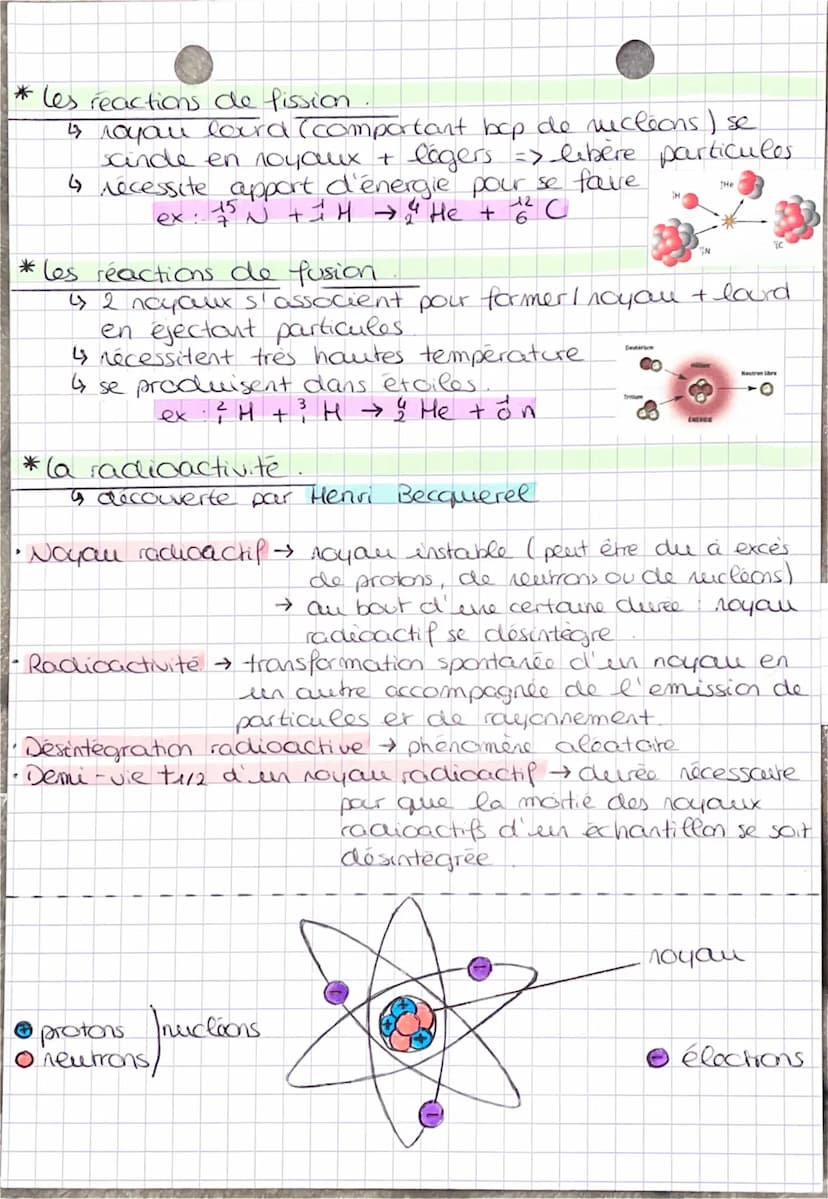 * Les réactions de fission.
↳ noyau lourd (comportant bcp de nucléons) se
scinde en noyaux + légers => libère particules
↳ nécessite apport d'énergie pour se faire
ex : ¹⁵₇N + ¹₁H → ⁴₂He + ¹²₆C
¹H
⁴He
¹⁵N
¹²C
* Les réactions de fusion.
↳ 2 noyaux s'associent pour former 1 noyau + lourd
en éjectant particules
↳ nécessitent très hautes température
↳ se produisent dans étoiles.
ex : ²₁H + ³₁H → ⁴₂He + ¹₀n
Deutérium
Hélium
Neutron libre
Tritium
ÉNERGIE
* La radioactivité.
↳ découverte par Henri Becquerel
· Noyau radioactif → noyau instable (peut être du à excès
de protons, de neutrons ou de nucléons)
→ au bout d'une certaine durée : noyau
radioactif se désintègre.
· Radioactivité → transformation spontanée d'un noyau en
un autre accompagnée de l'émission de
particules et de rayonnement.
· Désintégration radioactive → phénomène aléatoire
· Demi-vie t1/2 d'un noyau radioactif → durée nécessaire
pour que la moitié des noyaux
radioactifs d'un échantillon se soit
désintégrée.
noyau
+ protons
neutrons
nucléons
- électrons